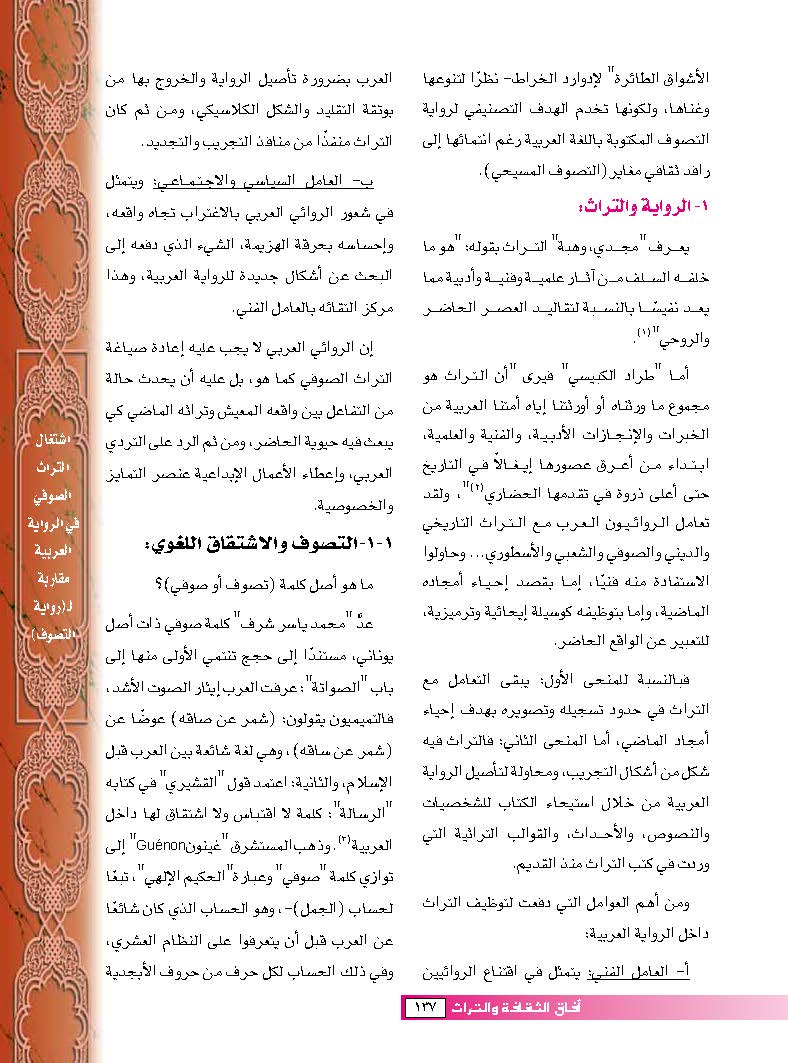 الأشواق الطائرة" لإدوارد الخراط- نظرًا لتنوعها
وغناها، ولكونها تخدم الهدف التصنيفي لرواية
التصوف المكتوبة باللغة العربية رغم انتمائها إلى
رافد ثقافي مغاير (التصوف المسيحي).
١- الرواية والتراث:
يعرف "مجدي، وهبة" التراث بقوله: "هو ما
خلفه السلف من آثار علمية وفنية وأدبية مما
يعد نفيسًا بالنسبة لتقاليد العصر الحاضر
والروحي"(١).
أما "طراد الكبيسي" فيرى "أن التراث هو
مجموع ما ورثناه أو أورثتنا إياه أمتنا العربية من
الخبرات والإنجازات الأدبية، والفنية والعلمية،
ابتداء من أعرق عصورها إيغالاً في التاريخ
حتى أعلى ذروة في تقدمها الحضاري(٢)"، ولقد
تعامل الروائيون العرب مع التراث التاريخي
والديني والصوفي والشعبي والأسطوري... وحاولوا
الاستفادة منه فنيًا، إما بقصد إحياء أمجاده
الماضية، وإما بتوظيفه كوسيلة إيحائية وترميزية،
للتعبير عن الواقع الحاضر.
فبالنسبة للمنحى الأول: يبقى التعامل مع
التراث في حدود تسجيله وتصويره بهدف إحياء
أمجاد الماضي، أما المنحى الثاني: فالتراث فيه
شكل من أشكال التجريب، ومحاولة لتأصيل الرواية
العربية من خلال استيحاء الكتاب للشخصيات
والنصوص، والأحداث، والقوالب التراثية التي
وردت في كتب التراث منذ القديم.
ومن أهم العوامل التي دفعت لتوظيف التراث
داخل الرواية العربية:
أ- العامل الفني: يتمثل في اقتناع الروائيين
العرب بضرورة تأصيل الرواية والخروج بها من
بوتقة التقليد والشكل الكلاسيكي، ومن ثم كان
التراث منفذًا من منافذ التجريب والتجديد.
ب- العامل السياسي والاجتماعي: ويتمثل
في شعور الروائي العربي بالاغتراب تجاه واقعه،
وإحساسه بحرقة الهزيمة، الشيء الذي دفعه إلى
البحث عن أشكال جديدة للرواية العربية، وهذا
مركز التقائه بالعامل الفني.
إن الروائي العربي لا يجب عليه إعادة صياغة
التراث الصوفي كما هو، بل عليه أن يحدث حالة
من التفاعل بين واقعه المعيش وتراثه الماضي كي
يبعث فيه حيوية الحاضر، ومن ثم الرد على التردي
العربي، وإعطاء الأعمال الإبداعية عنصر التمايز
والخصوصية.
١-١-التصوف والاشتقاق اللغوي:
ما هو أصل كلمة (تصوف أو صوفي)؟
عدَّ "محمد ياسر شرف" كلمة صوفي ذات أصل
يوناني، مستندًا إلى حجج تنتمي الأولى منها إلى
باب "الصواتة": عرفت العرب إيثار الصوت الأشد،
فالتميميون يقولون: (شمر عن صاقه) عوضًا عن
(شمر عن ساقه)، وهي لغة شائعة بين العرب قبل
الإسلام، والثانية: اعتمد قول "القشيري" في كتابه
"الرسالة": كلمة لا اقتباس ولا اشتقاق لها داخل
العربية(٣). وذهب المستشرق "غينونGuénon" إلى
توازي كلمة "صوفي" وعبارة "الحكيم الإلهي"، تبعًا
لحساب (الجمل)-، وهو الحساب الذي كان شائعًا
عن العرب قبل أن يتعرفوا على النظام العشري،
وفي ذلك الحساب لكل حرف من حروف الأبجدية
اشتغال
التراث
الصوفي
في الرواية
العربية
مقاربة
لـ(رواية
التصوف)
آفاق الثقافة والتراث ١٣٧